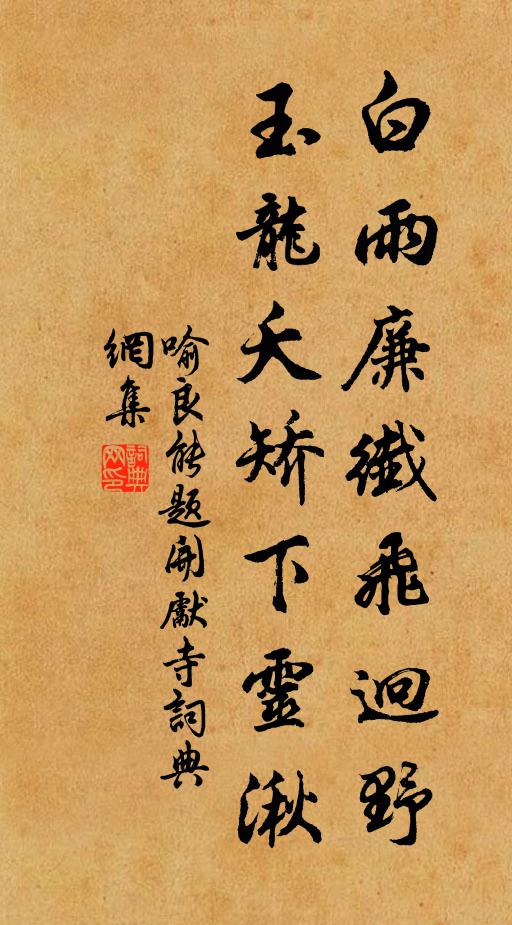 白雨廉纖飛迥野
玉龍夭矯下靈湫
喻良能題開獻寺詞典
網集
詞典
網印